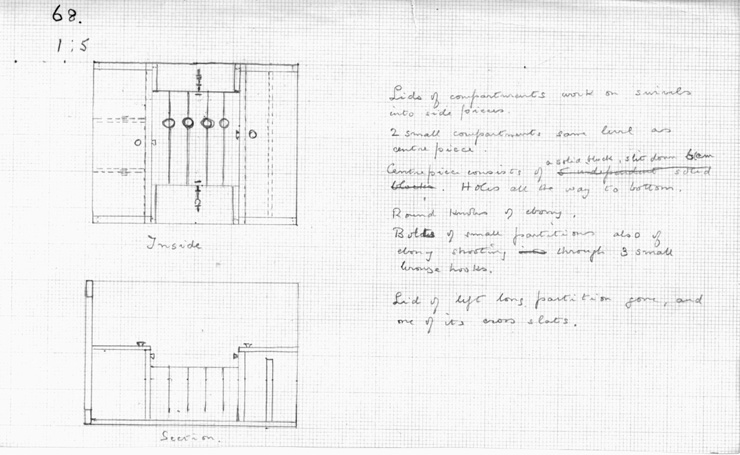 68.
1:5
Lids of compartments work on swivels
into side pieces.
2 small compartments same level as
centre piece.
a solid block, slit down 6 cm
Centrepiece consists of 5 independent solid
blocks. Holes all the way to bottom.
Round knobs of ebony.
Bolts of small partitions also of
ebony shooting into through 3 small
bronze hooks.
Lid of left long partition gone, and
one of its cross slats.
Inside
Section.